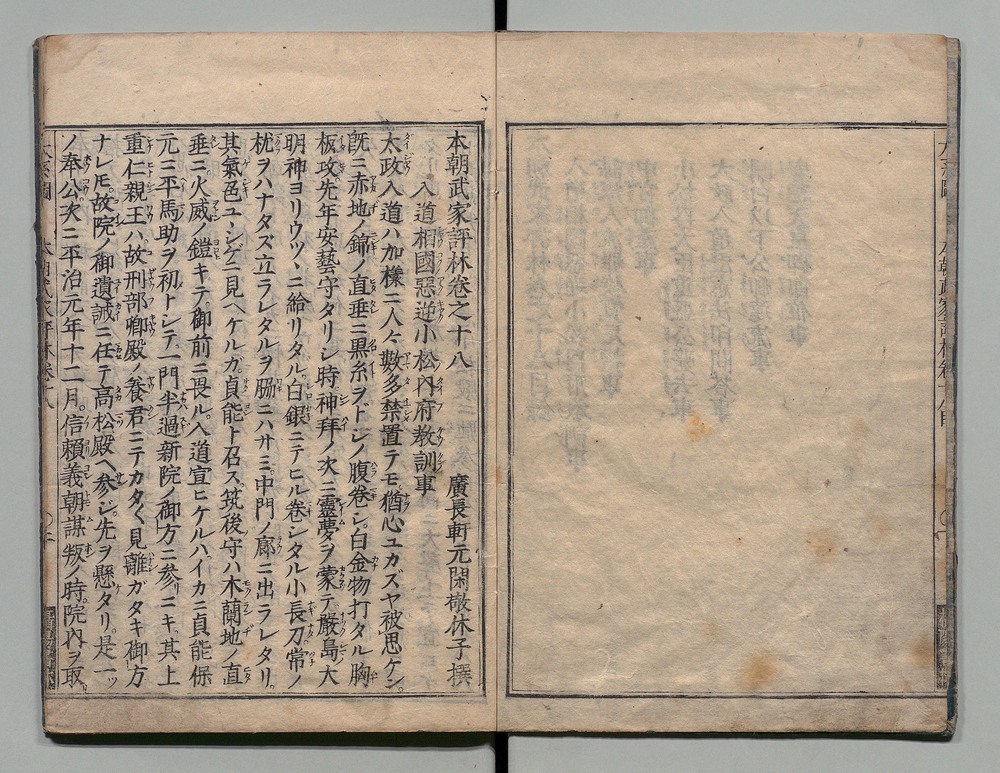 本朝武家評林卷之十八　廣長軒元閑敬休子撰
入道相國惡逆小松內府教訓事
太政入道ハ加樣ニ人々數多禁置テモ猶心ユカズヤ被思ケン
既ニ赤地ノ錦ノ直垂ニ黒糸ヲドシノ腹卷シ白金物打タル胸
板政先年安藝守タリシ時神拜ノ次ニ靈夢ヲ蒙テ嚴島大
明神ヨリウツヽニ給リタル白銀ニテヒル卷シタル小長刀常ノ
枕ヲハナタズ立ラレタルヲ脇ニハサミ中門ノ廊ニ出ラレタリ
其氣色ユヽシゲニ見ヘケルガ貞能ト召ス筑後守ハ木蘭地ノ直
垂ニ火威ノ鎧キテ御前ニ畏ル入道宣ヒケルハイカニ貞能保
元ニ平馬助ヲ初トシテ一門半過新院ノ御方ニ參リニキ其上
重仁親王ハ故刑部卿殿ノ養君ニテカタ〲見離ガタキ御方
ナレ𪜈故院ノ御遺誡ニ任テ高松殿ヘ參ジ先ヲ懸タリ是一ツ
ノ奉公次ニ平治元年十二月信賴義朝謀叛ノ時院內ヲ取